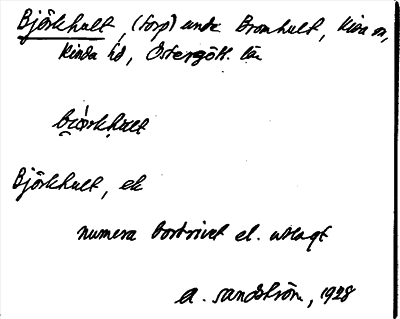 Björkhult, (torp) under Bromhult, Kisa sn,
Kinda hd, Östergötl. län
Björkhult, ek
numera bortrivet el. utlagt
A. Sandström, 1928